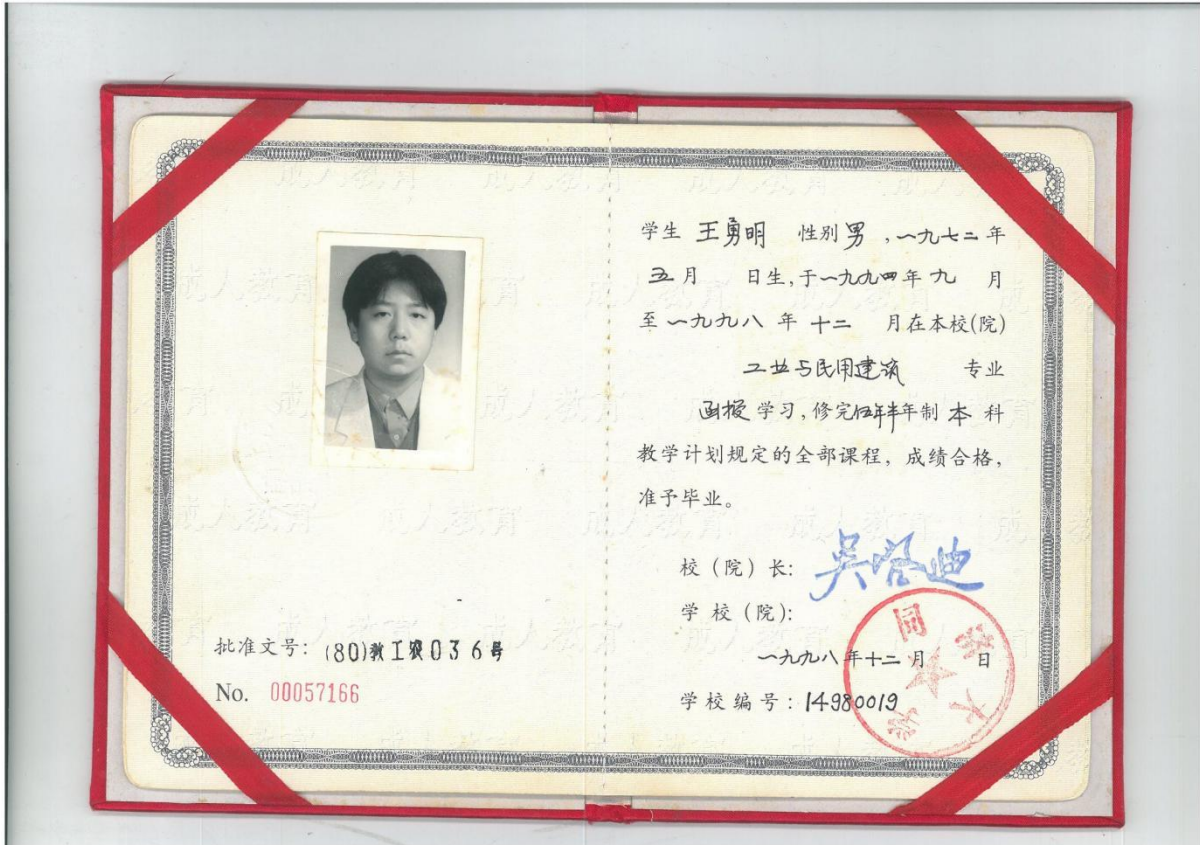 批准文号：(80)教工农036号
No. 00057166
学生 王勇明 性别 男，一九七二年
五月 日生，于一九九四年九 月
至一九九八 年 十二 月在本校(院)
工业与民用建筑 专业
函授 学习，修完伍年半年制 本 科
教学计划规定的全部课程，成绩合格，
准予毕业。
校（院）长： 吴启迪
学 校（院）：
一九九八年十二月 日
学校编号：14980019
同济大学
成人教育